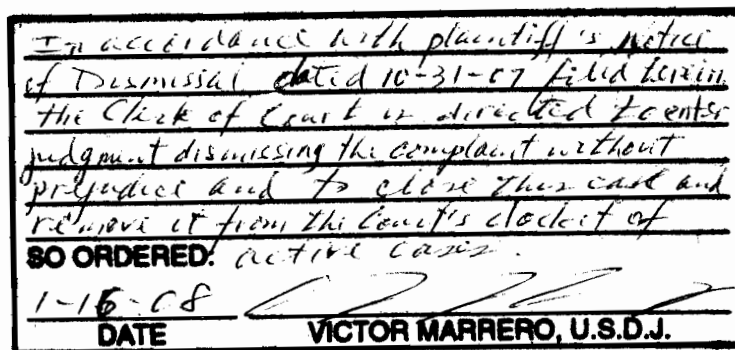 In accordance with plaintiff's Notice
of Dismissal dated 10-31-07 filed herein
the Clerk of Court is directed to enter
judgment dismissing the complaint without
prejudice and to close this case and
remove it from the Court's docket of
SO ORDERED: active cases.
1-16-08
DATE VICTOR MARRERO, U.S.D.J.